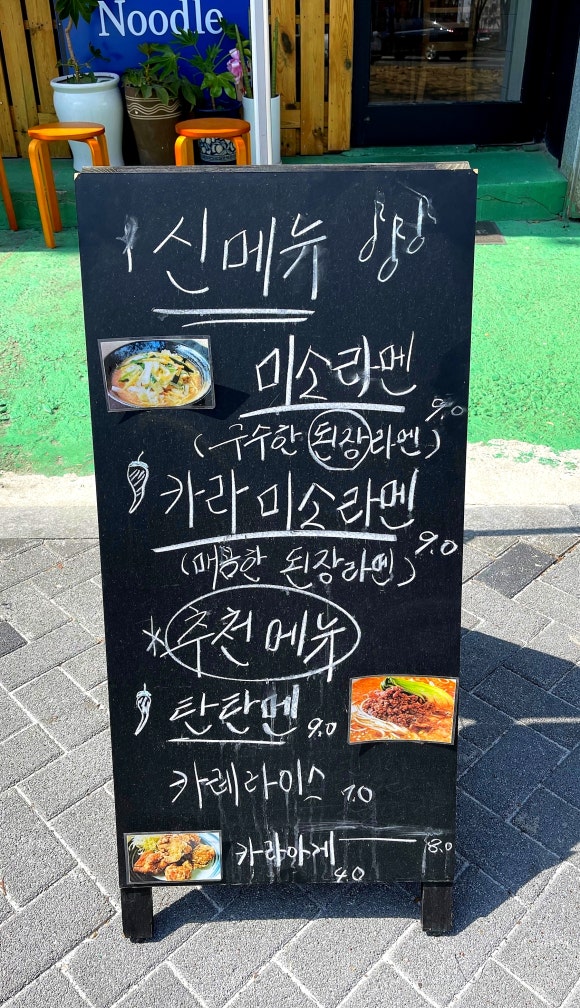 Noodle
신메뉴
미소라멘
9.0
(구수한 된장라멘)
카라미소라멘
9.0
(매콤한 된장라멘)
*추천메뉴
탄탄멘 9.0
카레라이스 7.0
카라아게 8.0
4.0